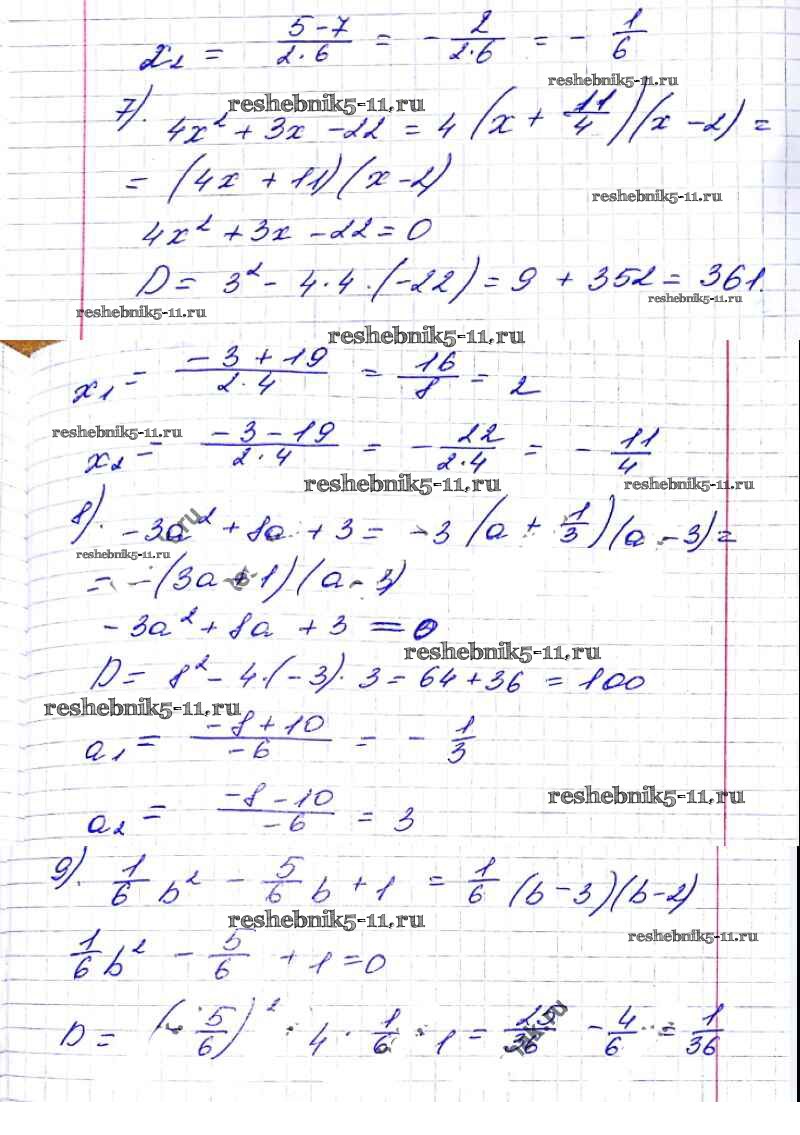 x₂ = (5-7)/(2·6) = - 2/(2·6) = - 1/6
reshebnik5-11.ru
7). reshebnik5-11.ru
4x² + 3x - 22 = 4 (x + 11/4)(x - 2) =
= (4x + 11)(x - 2)
reshebnik5-11.ru
4x² + 3x - 22 = 0
D = 3² - 4·4·(-22) = 9 + 352 = 361.
reshebnik5-11.ru
reshebnik5-11.ru
reshebnik5-11.ru
x₁ = (-3 + 19)/(2·4) = 16/8 = 2
reshebnik5-11.ru
x₂ = (-3 - 19)/(2·4) = - 22/(2·4) = - 11/4
reshebnik5-11.ru
reshebnik5-11.ru
8). -3a² + 8a + 3 = -3 (a + 1/3)(a - 3) =
reshebnik5-11.ru
= -(3a + 1)(a - 3)
-3a² + 8a + 3 = 0
reshebnik5-11.ru
D = 8² - 4·(-3)·3 = 64 + 36 = 100
reshebnik5-11.ru
a₁ = (-8 + 10)/(-6) = - 1/3
reshebnik5-11.ru
a₂ = (-8 - 10)/(-6) = 3
9). 1/6 b² - 5/6 b + 1 = 1/6 (b - 3)(b - 2)
reshebnik5-11.ru
reshebnik5-11.ru
1/6 b² - 5/6 + 1 = 0
D = (- 5/6)² · 4 · 1/6 · 1 = 25/36 - 4/6 = 1/36